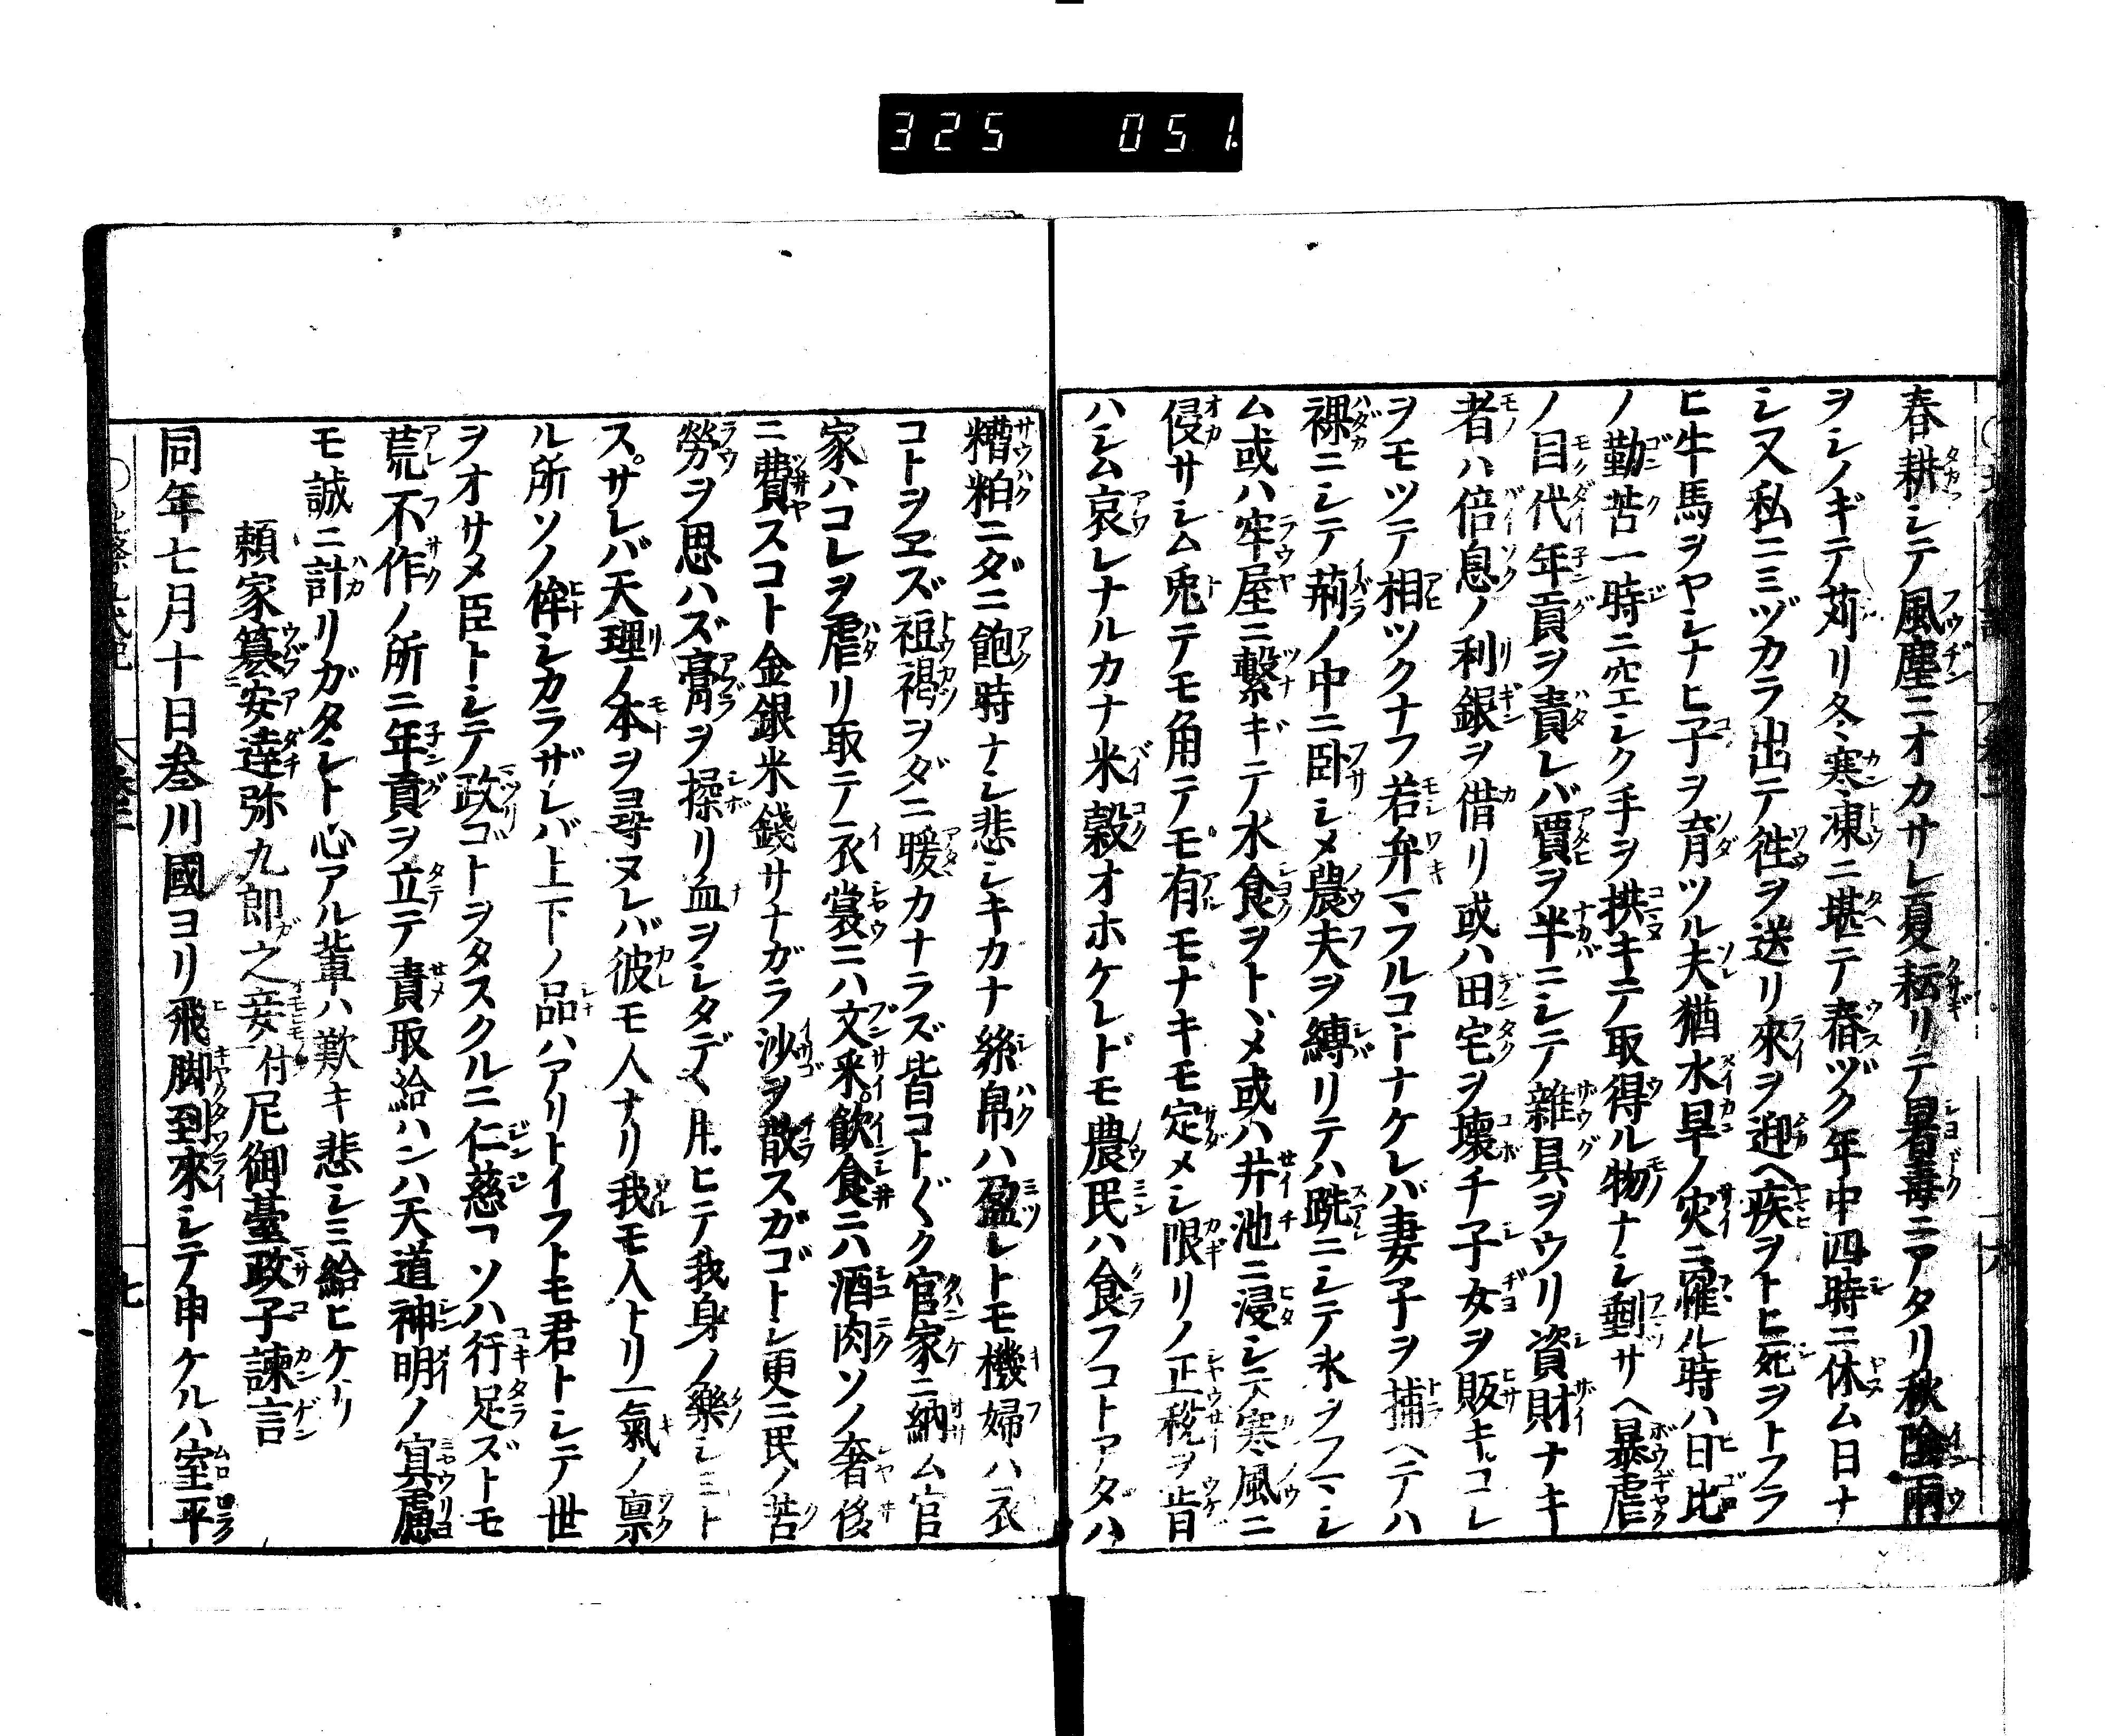 325 051.
春耕シテ風塵ニオカサレ夏耘リテ暑毒ニアタリ秋陰雨
ヲシノギテ苅リ冬寒凍ニ堪テ舂ヅク年中四時ニ休ム日ナ
シ又私ニミヅカラ出テ徃ヲ送リ來ヲ迎ヘ疾ヲトヒ死ヲトフラ
ヒ牛馬ヲヤシナヒ子ヲ育ツル夫猶水旱ノ災ニ罹ル時ハ日比
ノ勤苦一時ニ空シク手ヲ拱キテ取得ル物ナシ剰サヘ暴虐
ノ目代年貢ヲ責レバ賈ヲ半ニシテ雑具ヲウリ資財ナキ
者ハ倍息ノ利銀ヲ借リ或ハ田宅ヲ壊チ子女ヲ販キコレ
ヲモツテ相ツクナフ若弁マフルコトナケレバ妻子ヲ捕ヘテハ
裸ニシテ荊ノ中ニ卧サシメ農夫ヲ縛リテハ跣ニシテ氷ヲフマシ
ム或ハ牢屋ニ繋ギテ水食ヲトヾメ或ハ井池ニ浸シテ寒風ニ
侵サシム兎テモ角テモ有モナキモ定メシ限リノ正税ヲ肯
ハシム哀レナルカナ米穀オホケレドモ農民ハ食フコトアタハ
糟粕ニダニ飽時ナシ悲シキカナ絲帛ハ盈レトモ機婦ハ衣
コトヲヱズ袒褐ヲダニ暖カナラズ皆コト〴〵ク官家ニ納ム官
家ハコレヲ虐リ取テ衣裳ニハ文采飲食ニハ酒肉ソノ奢侈
ニ費スコト金銀米錢サナガラ沙ヲ散スガゴトシ更ニ民ノ苦
勞ヲ思ハズ膏ヲ搾リ血ヲシタデヽ用ヒテ我身ノ樂シミト
スサレバ天理ノ本ヲ尋ヌレバ彼モ人ナリ我モ人トリ一氣ノ禀
ル所ソノ侔シカラザレバ上下ノ品ハアリトイフトモ君トシテ世
ヲオサメ臣トシテ政ゴトヲタスクルニ仁慈コソハ行足ズトモ
荒不作ノ所ニ年貢ヲ立テ責取給ハンハ天道神明ノ冥慮
モ誠ニ計リガタシト心アル輩ハ歎キ悲シミ給ヒケリ
頼家簒安達弥九郎之妾付尼御臺政子諫言
同年七月十日叄川國ヨリ飛脚到來シテ申ケルハ室平
七